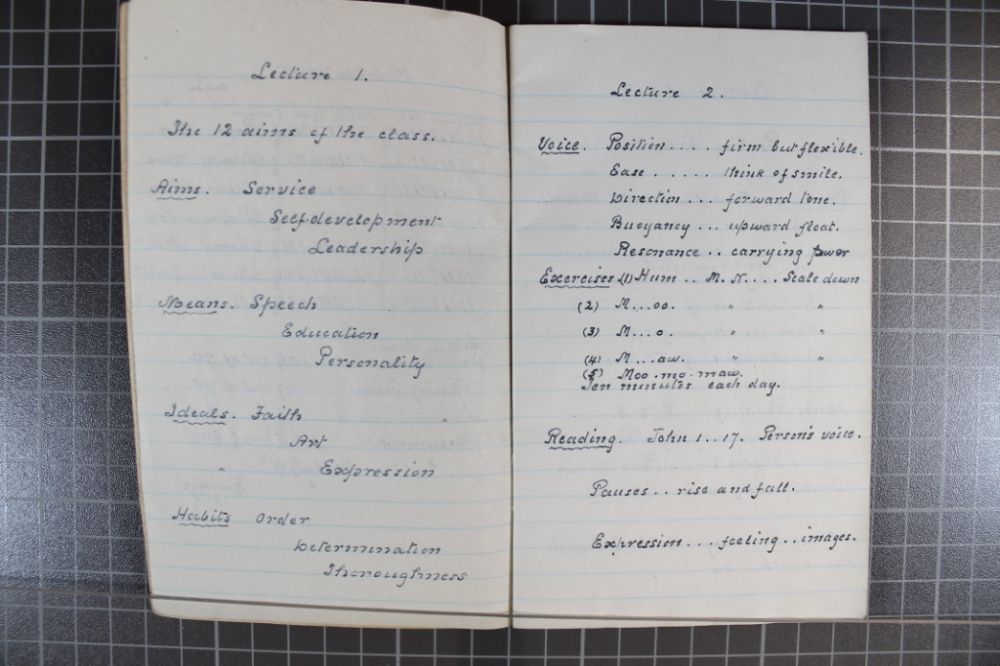 Lecture 1.
The 12 aims of the class.
Aims. Service
Self-development
Leadership
Means. Speech
Education
Personality
Ideals. Faith
Art
Expression
Habits Order
Determination
Thoroughness
Lecture 2.
Voice. Position .... firm but flexible.
Ease ..... think of smile.
Direction ... forward tone.
Buoyancy ... upward float.
Resonance .. carrying power
Exercises (1) Hum .. M. N .... Scale down
(2) M...oo. " "
(3) M...o. " "
(4) M...aw. " "
(5) Moo.mo.maw.
Ten minutes each day.
Reading. John 1..17. Person's voice.
Pauses .. rise and fall.
Expression ... feeling .. images.